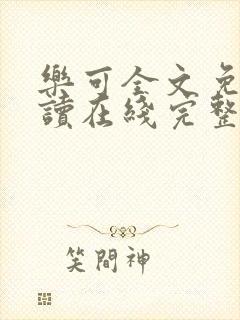 樂可全文免
讀在綫完整
笑閱神